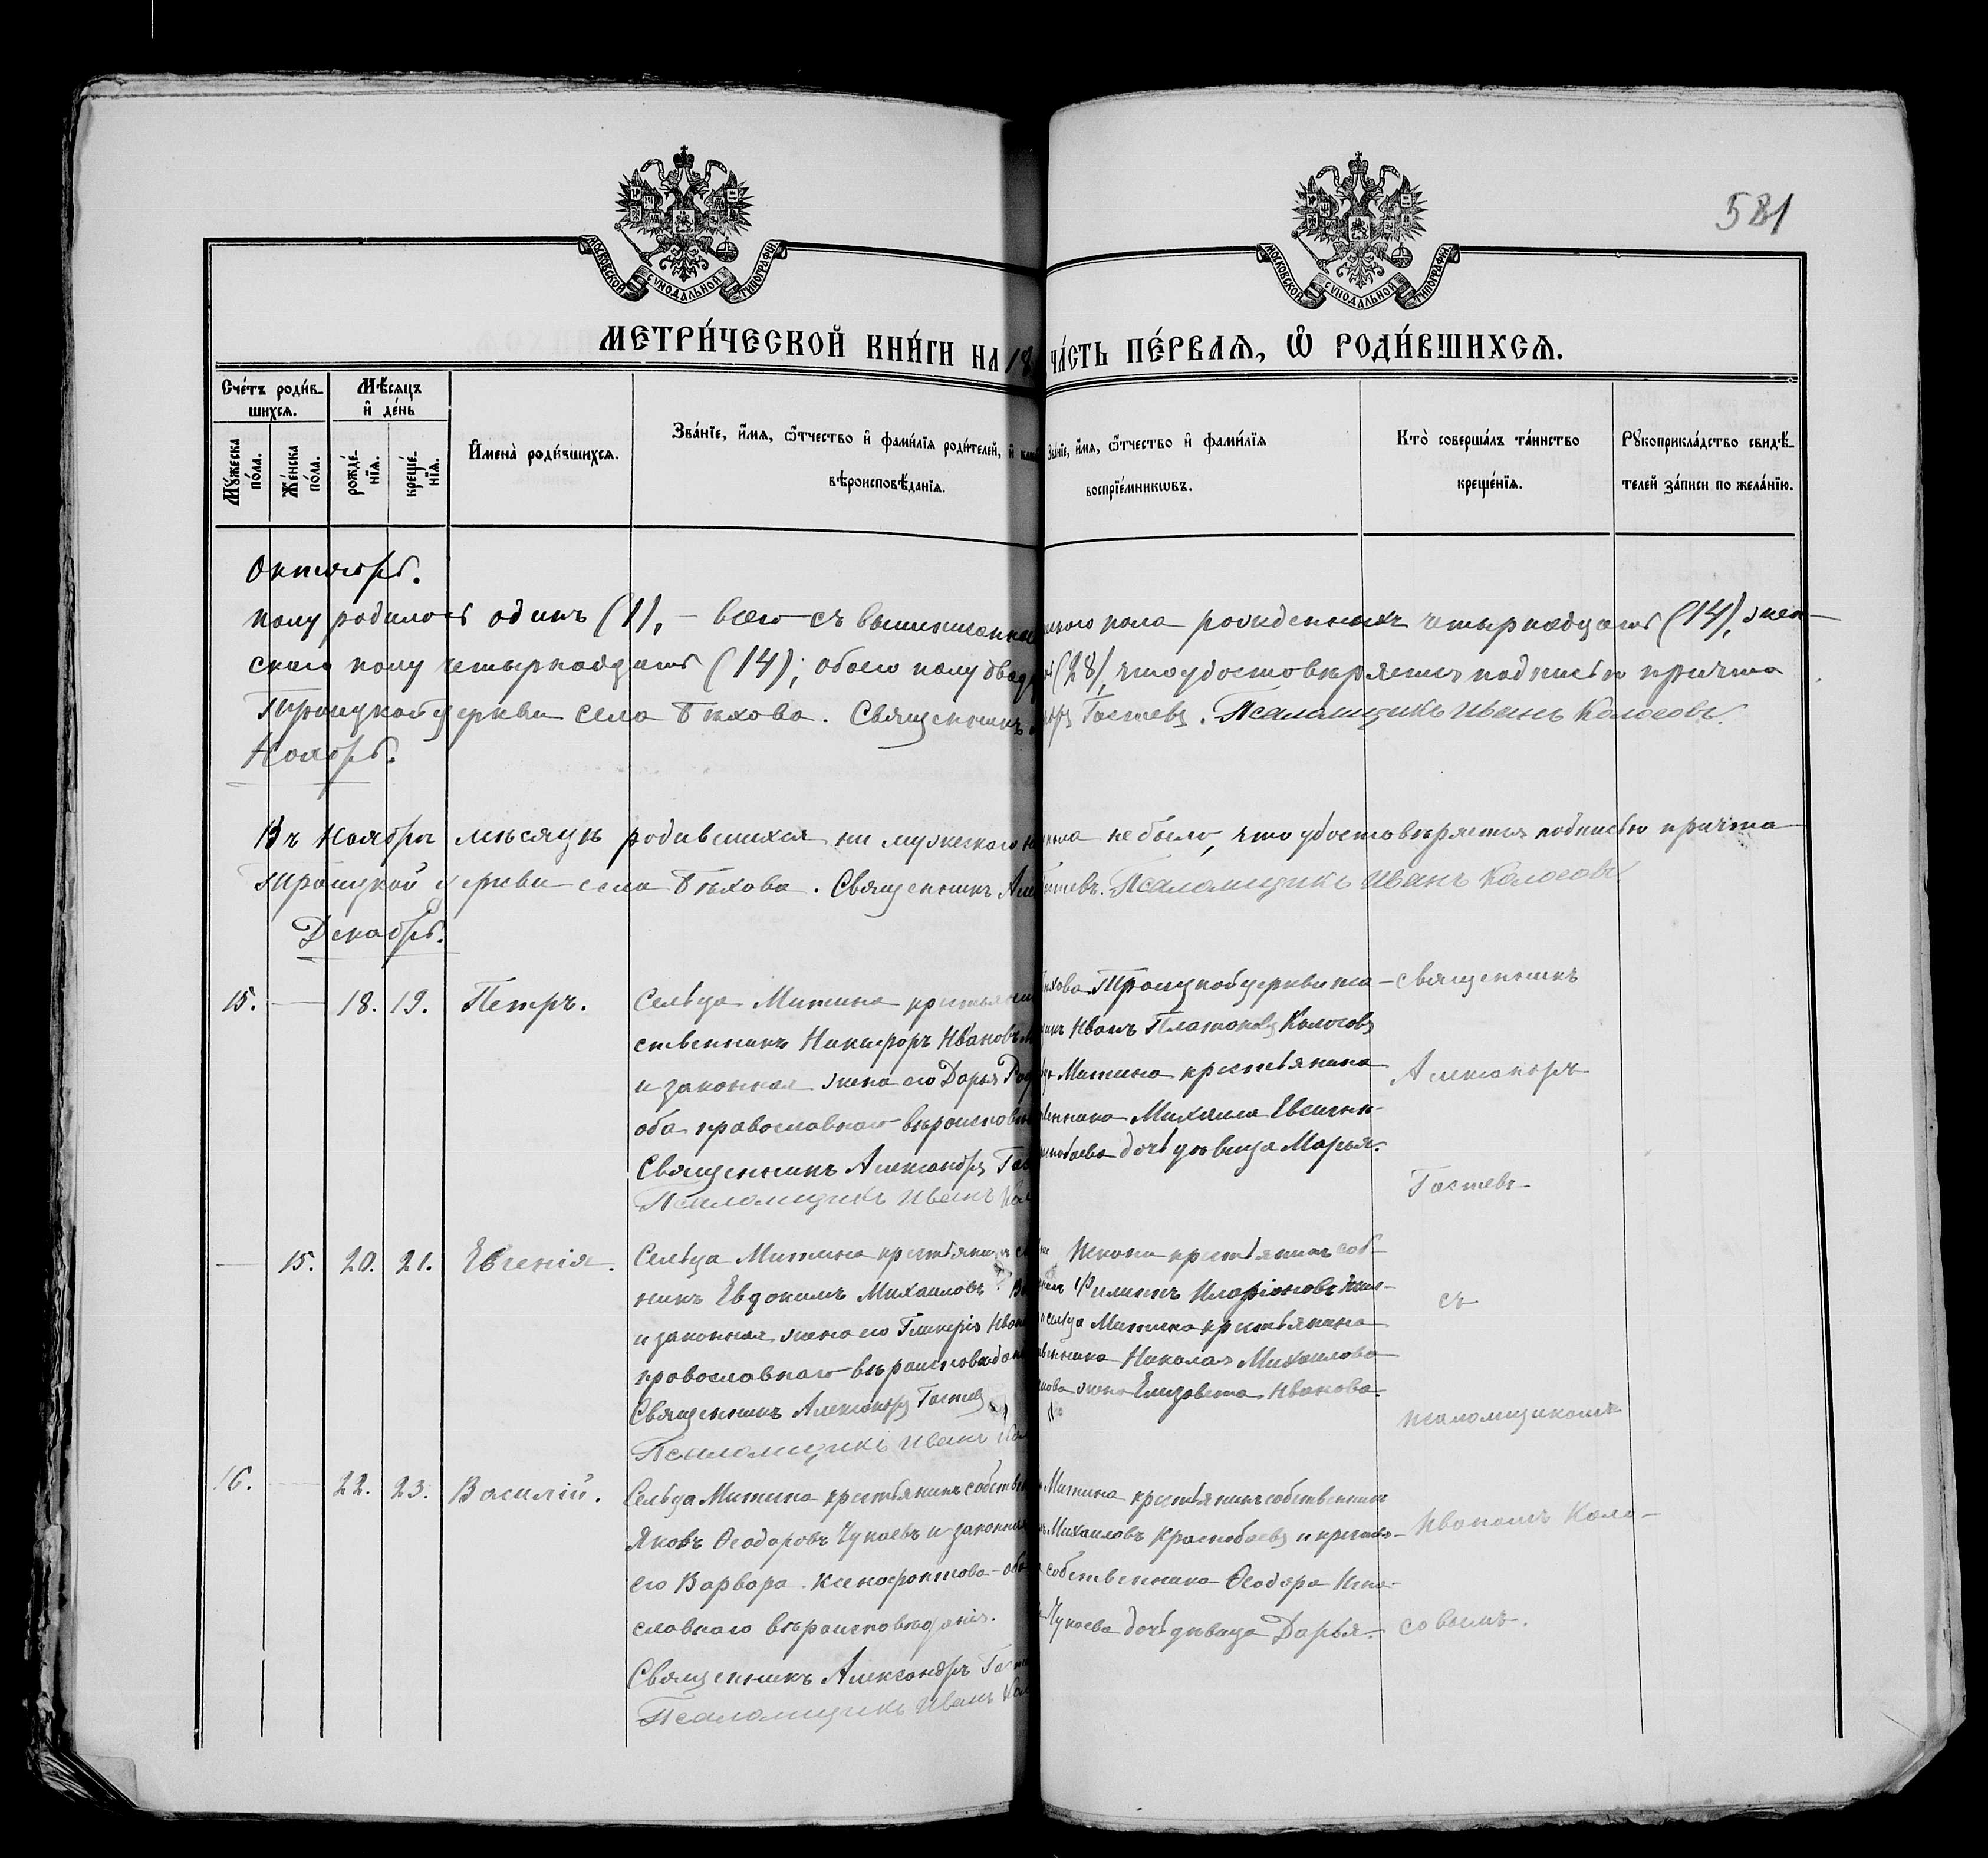 581
МОСКОВСКОЙ СУНОДАЛЬНОЙ ТИПОГРАФІИ
МОСКОВСКОЙ СУНОДАЛЬНОЙ ТИПОГРАФІИ
МЕТРИ́ЧЕСКОЙ КНИ́ГИ НА 18
ЧА́СТЬ ПЕ́РВАѦ, Ѡ РОДИ́ВШИХСѦ.
Сче́тъ роди́в-
шихсѧ.
Мѣ́сяцъ
и де́нь
Мꙋ́жеска
по́ла.
Же́нска
по́ла.
рожде́-
нїѧ.
креще́-
нїѧ.
Имена̀ роди́вшихсѧ.
Зва́нїе, и́мѧ, ѻ́тчество и фами́лїѧ роди́телей, и
вѣроисповѣ́данїѧ.
Зва́нїе, и́мѧ, ѻ́тчество и фами́лїѧ
воспрїе́мникѡвъ.
Кто̀ соверша́лъ та́инство
креще́нїѧ.
Рꙋкоприкла́дство свидѣ́-
телей за́писи по жела́нїю.
Октябрь.
полу родилось одинъ (1), – всего съ
пола рожденныхъ четырнадцать (14), жен-
скаго полу четырнадцать (14); обоего полу
(28), что удостовѣряется подписью причта
Троицкой церкви села Бѣхова. Священникъ
Гастевъ. Псаломщикъ Иванъ Колосовъ.
Ноябрь.
Въ Ноябрѣ мѣсяцѣ родившихся ни мужескаго
не было, что удостовѣряется подписью причта
Троицкой церкви села Бѣхова. Священникъ
Псаломщикъ Иванъ Колосовъ.
Декабрь.
15. — 18. 19. Петръ.
Сельца Митина
ственникъ Никифоръ Ивановъ
и законная жена его Дарья
оба православнаго
Священникъ Александръ
Псаломщикъ Иванъ
Троицкой церкви
Иванъ Платоновъ Колосовъ
Митина крестьянина
Михаила
дочь дѣвица Марья.
Священникъ
Александръ
Гастевъ
— 15. 20. 21. Евгенія.
Сельца Митина
никъ Евдокимъ Михаиловъ
и законная жена его Гликерія
православнаго вѣроисповѣдан
Священникъ Александръ Гастевъ
Псаломщикъ Иванъ
крестьянинъ соб-
Филиппъ Иларіоновъ
сельца Митина крестьянина
Николая Михаилова
жена Елизавета Иванова.
съ
псаломщикомъ
16. — 22. 23. Василій.
Сельца Митина крестьянинъ
Яковъ Ѳеодоровъ Чукаевъ и законная
его Варвара Ксенофонтова
славнаго вѣроисповѣданія.
Священникъ Александръ
Псаломщикъ Иванъ
Митина крестьянинъ собственникъ
Михаиловъ Краснобаевъ и
собственника Ѳеодора
Чукаева дочь дѣвица Дарья.
Иваномъ Коло-
совымъ.